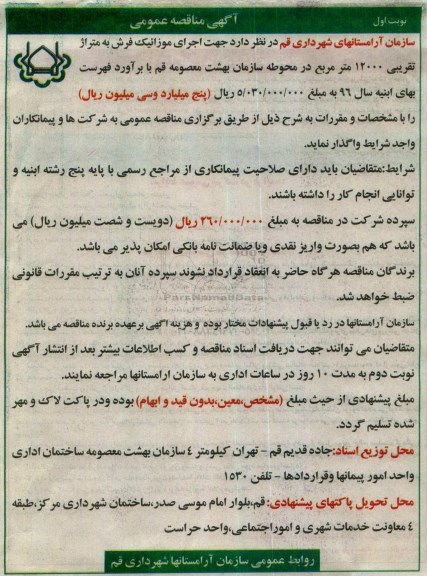 نوبت اول
آگهی مناقصه عمومی
سازمان آرامستانهای شهرداری قم در نظر دارد جهت اجرای موزائیک فرش به متراژ
تقریبی ۱۲۰۰۰ متر مربع در محوطه سازمان بهشت معصومه قم با برآورد فهرست
بهای ابنیه سال ۹۶ به مبلغ ۵/۰۳۰/۰۰۰/۰۰۰ ریال (پنج میلیارد وسی میلیون ریال)
را با مشخصات و مقررات به شرح ذیل از طریق برگزاری مناقصه عمومی به شرکت ها و پیمانکاران
واجد شرایط واگذار نماید.
شرایط:متقاضیان باید دارای صلاحیت پیمانکاری از مراجع رسمی با پایه پنج رشته ابنیه و
توانایی انجام کار را داشته باشند.
سپرده شرکت در مناقصه به مبلغ ۲۶۰/۰۰۰/۰۰۰ ریال (دویست و شصت میلیون ریال) می
باشد که هم بصورت واریز نقدی ویا ضمانت نامه بانکی امکان پذیر می باشد.
برندگان مناقصه هرگاه حاضر به انعقاد قرارداد نشوند سپرده آنان به ترتیب مقررات قانونی
ضبط خواهد شد.
ParsNamadData
سازمان آرامستانها در رد یا قبول پیشنهادات مختار بوده و هزینه اگهی برعهده برنده مناقصه می باشد.
متقاضیان می توانند جهت دریافت اسناد مناقصه و کسب اطلاعات بیشتر بعد از انتشار آگهی
نوبت دوم به مدت ۱۰ روز در ساعات اداری به سازمان ارامستانها مراجعه نمایند.
مبلغ پیشنهادی از حیث مبلغ (مشخص،معین،بدون قید و ابهام) بوده ودر پاکت لاک و مهر
شده تسلیم گردد.
محل توزیع اسناد:جاده قدیم قم - تهران کیلومتر ٤ سازمان بهشت معصومه ساختمان اداری
واحد امور پیمانها وقراردادها - تلفن ۱۵۳۰
محل تحویل پاکتهای پیشنهادی:قم،بلوار امام موسی صدر،ساختمان شهرداری مرکز،طبقه
٤ معاونت خدمات شهری و اموراجتماعی،واحد حراست
روابط عمومی سازمان آرامستانها شهرداری قم